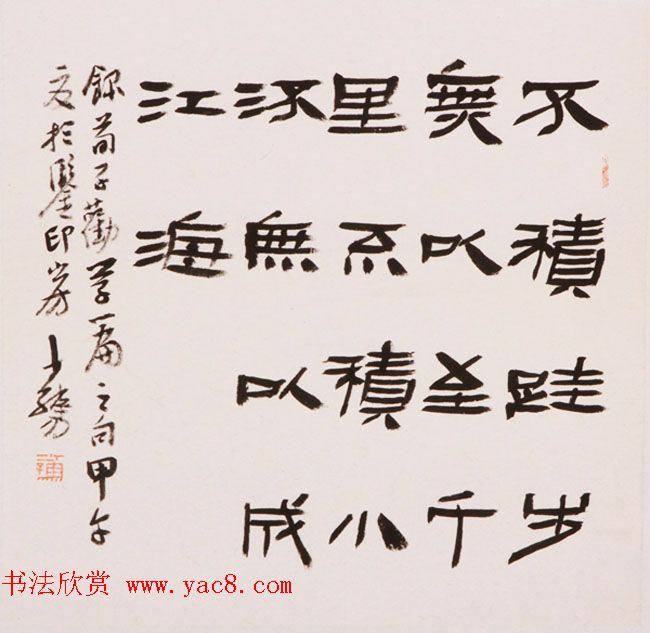 不積跬步
無以至千
里不積小
流無以成
江海
錄荀子勸學篇之句甲午
夏於鑒印山房士
书法欣赏 www.yac8.com